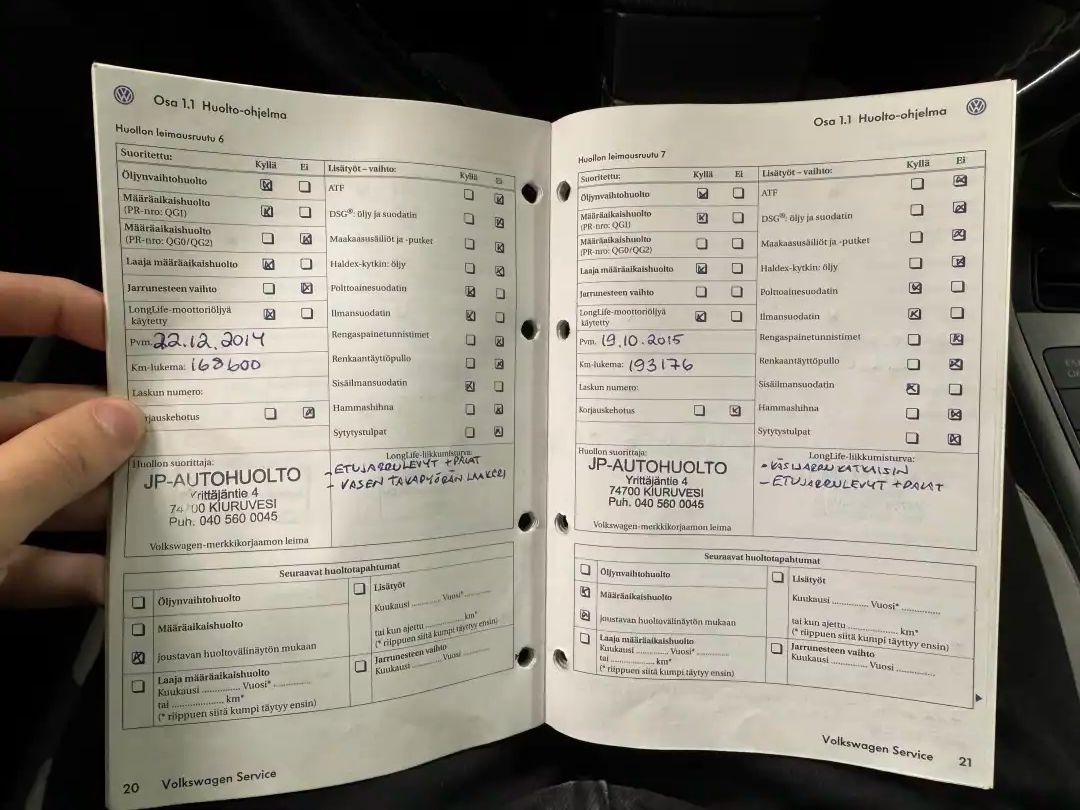 Osa 1.1 Huolto-ohjelma
Huollon leimausruutu 6
Suoritettu: Kyllä Ei
Öljynvaihtohuolto
Määräaikaishuolto
(PR-nro: QGI)
Määräaikaishuolto
(PR-nro: QG0/QG2)
Laaja määräaikaishuolto
Jarrunesteen vaihto
LongLife-moottoriöljyä
käytetty
Pvm. 22.12.2014
Km-lukema: 168600
Laskun numero:
Korjauskehotus
Lisätyöt – vaihto: Kyllä Ei
ATF
DSG®: öljy ja suodatin
Maakaasusäiliöt ja -putket
Haldex-kytkin: öljy
Polttoainesuodatin
Ilmansuodatin
Rengaspainetunnistimet
Renkaantäyttöpullo
Sisäilmansuodatin
Hammashihna
Sytytystulpat
Huollon suorittaja:
JP-AUTOHUOLTO
Yrittäjäntie 4
74700 KIURUVESI
Puh. 040 560 0045
Volkswagen-merkkikorjaamon leima
LongLife-liikkumisturva:
- ETUJARRULEVYT + PALAT
- VASEN TAKAPYÖRÄN LAAKERI
Seuraavat huoltotapahtumat
Öljynvaihtohuolto
Määräaikaishuolto
joustavan huoltovälinäytön mukaan
Laaja määräaikaishuolto
Kuukausi ............. Vuosi* .............
tai .................... km*
(* riippuen siitä kumpi täytyy ensin)
Lisätyöt
Kuukausi ............. Vuosi* .............
tai kun ajettu .................... km*
(* riippuen siitä kumpi täytyy ensin)
Jarrunesteen vaihto
Kuukausi ............. Vuosi .............
20 Volkswagen Service
Osa 1.1 Huolto-ohjelma
Huollon leimausruutu 7
Suoritettu: Kyllä Ei
Öljynvaihtohuolto
Määräaikaishuolto
(PR-nro: QGI)
Määräaikaishuolto
(PR-nro: QG0/QG2)
Laaja määräaikaishuolto
Jarrunesteen vaihto
LongLife-moottoriöljyä
käytetty
Pvm. 19.10.2015
Km-lukema: 193176
Laskun numero:
Korjauskehotus
Lisätyöt – vaihto: Kyllä Ei
ATF
DSG®: öljy ja suodatin
Maakaasusäiliöt ja -putket
Haldex-kytkin: öljy
Polttoainesuodatin
Ilmansuodatin
Rengaspainetunnistimet
Renkaantäyttöpullo
Sisäilmansuodatin
Hammashihna
Sytytystulpat
Huollon suorittaja:
JP-AUTOHUOLTO
Yrittäjäntie 4
74700 KIURUVESI
Puh. 040 560 0045
Volkswagen-merkkikorjaamon leima
LongLife-liikkumisturva:
- KÄSIJARRU KATKAISIN
- ETUJARRULEVYT + PALAT
Seuraavat huoltotapahtumat
Öljynvaihtohuolto
Määräaikaishuolto
joustavan huoltovälinäytön mukaan
Laaja määräaikaishuolto
Kuukausi ............. Vuosi* .............
tai .................... km*
(* riippuen siitä kumpi täytyy ensin)
Lisätyöt
Kuukausi ............. Vuosi* .............
tai kun ajettu .................... km*
(* riippuen siitä kumpi täytyy ensin)
Jarrunesteen vaihto
Kuukausi ............. Vuosi .............
Volkswagen Service 21